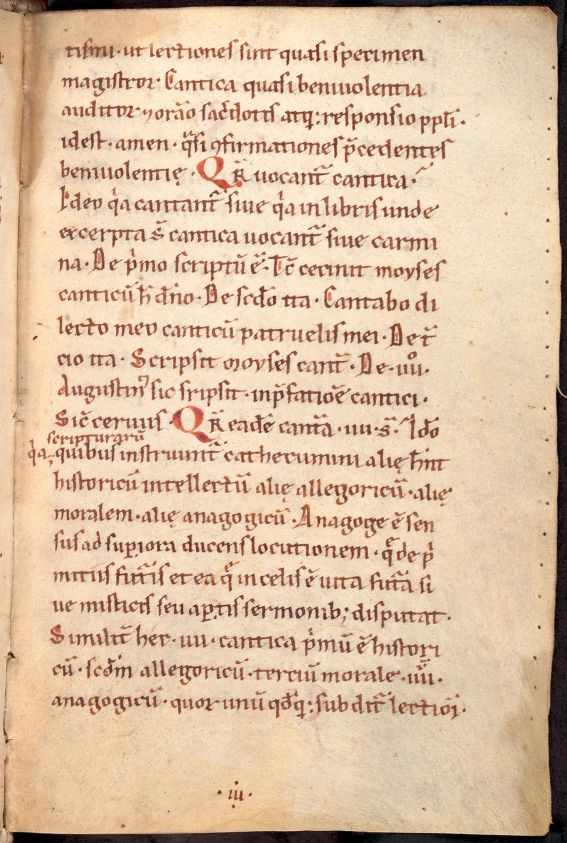 tismi · ut lectiones sint quasi specimen
magistror̄ Cantica quasi beniuolentia
auditor̄ ⁊ orāo sac̄dotis atq: responsio pp̄li ·
idest · amen · q̄si ꝯfirmationes p̄cedentes
beniuolentię · Qr̄ uocant̄ cantica ·
Ideo q̄a cantant̄ siue q̄a in libris unde
excerpta s̄ cantica uocant̄ siue carmi
na · De p̄mo scriptū ē · Tc̄ cecinit moyses
canticū h̄ dn̄o · De scd̄o ita · Cantabo di
lecto meo canticū patruelis mei · De t̄
cio ita · Scripsit moyses cant̄ · De · iiii ·
Augustin᾽ sic sripsit · in p̄fatiōe cantici ·
Sic̄ ceruus · Qr̄ eadē canta · iiii · s̄ · Ido
scripturarū
q̄a quibus instruunt̄ cathecumini alię h̄nt
historicū intellectū alię allegoricū · alię
moralem · alię anagogicū · Anagoge ē sen
sus ad sup̱iora ducens locutionem · q̄ de p̄
mitiis futur̄is et ea q̄ in celis ē uita futūra si
ue misticis seu ap̱tis sermonib; disputat ·
Similit̄ hec · iiii · cantica p̄mū ē histori
cū · scd̄m allegoricū · terciū morale · iiii
anagogicū · quor̄ unū qd̄q: subdit̄ lectiōi ·
· iii ·